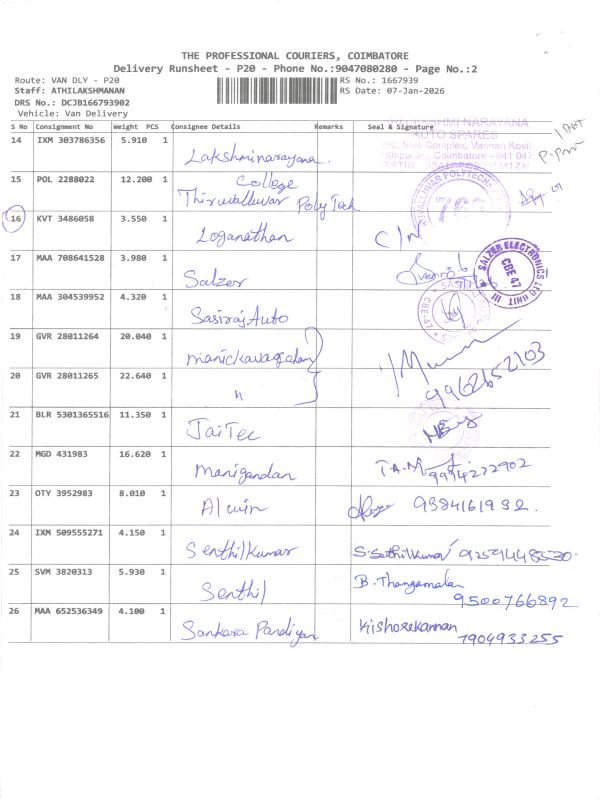 THE PROFESSIONAL COURIERS, COIMBATORE
Delivery Runsheet - P20 - Phone No.:9047080280 - Page No.:2
Route: VAN DLY - P20 RS No.: 1667939
Staff: ATHILAKSHMANAN RS Date: 07-Jan-2026
DRS No.: DCJB166793902
Vehicle: Van Delivery
S No Consignment No Weight PCS Consignee Details Remarks Seal & Signature
14 IXM 303786356 5.910 1 Lakshminarayana
AUTO SPARES
Siva Complex, Vannan Kovil
Coimbatore - 641 047
15 POL 2288022 12.200 1 College
Thiruvalluvar Poly Tech
16 KVT 3486058 3.550 1 Loganathan
17 MAA 708641528 3.980 1 Salzer
SALZER ELECTRONICS LTD UNIT III
CBE 47
18 MAA 304539952 4.320 1 Sasiraj Auto
19 GVR 28011264 20.040 1 Manickavasagam
9962652103
20 GVR 28011265 22.640 1 "
21 BLR 5301365516 11.350 1 JaiTec
22 MGD 431983 16.620 1 Manigandan T.A.M 9994272902
23 OTY 3952983 8.010 1 Alwin 9384161932
24 IXM 509555271 4.150 1 Senthilkumar S.Sathilkumar
25 SVM 3820313 5.930 1 Senthil B. Thangamalar
9500766892
26 MAA 652536349 4.100 1 Sankara Pandiyan Kishorekannan
7904933255